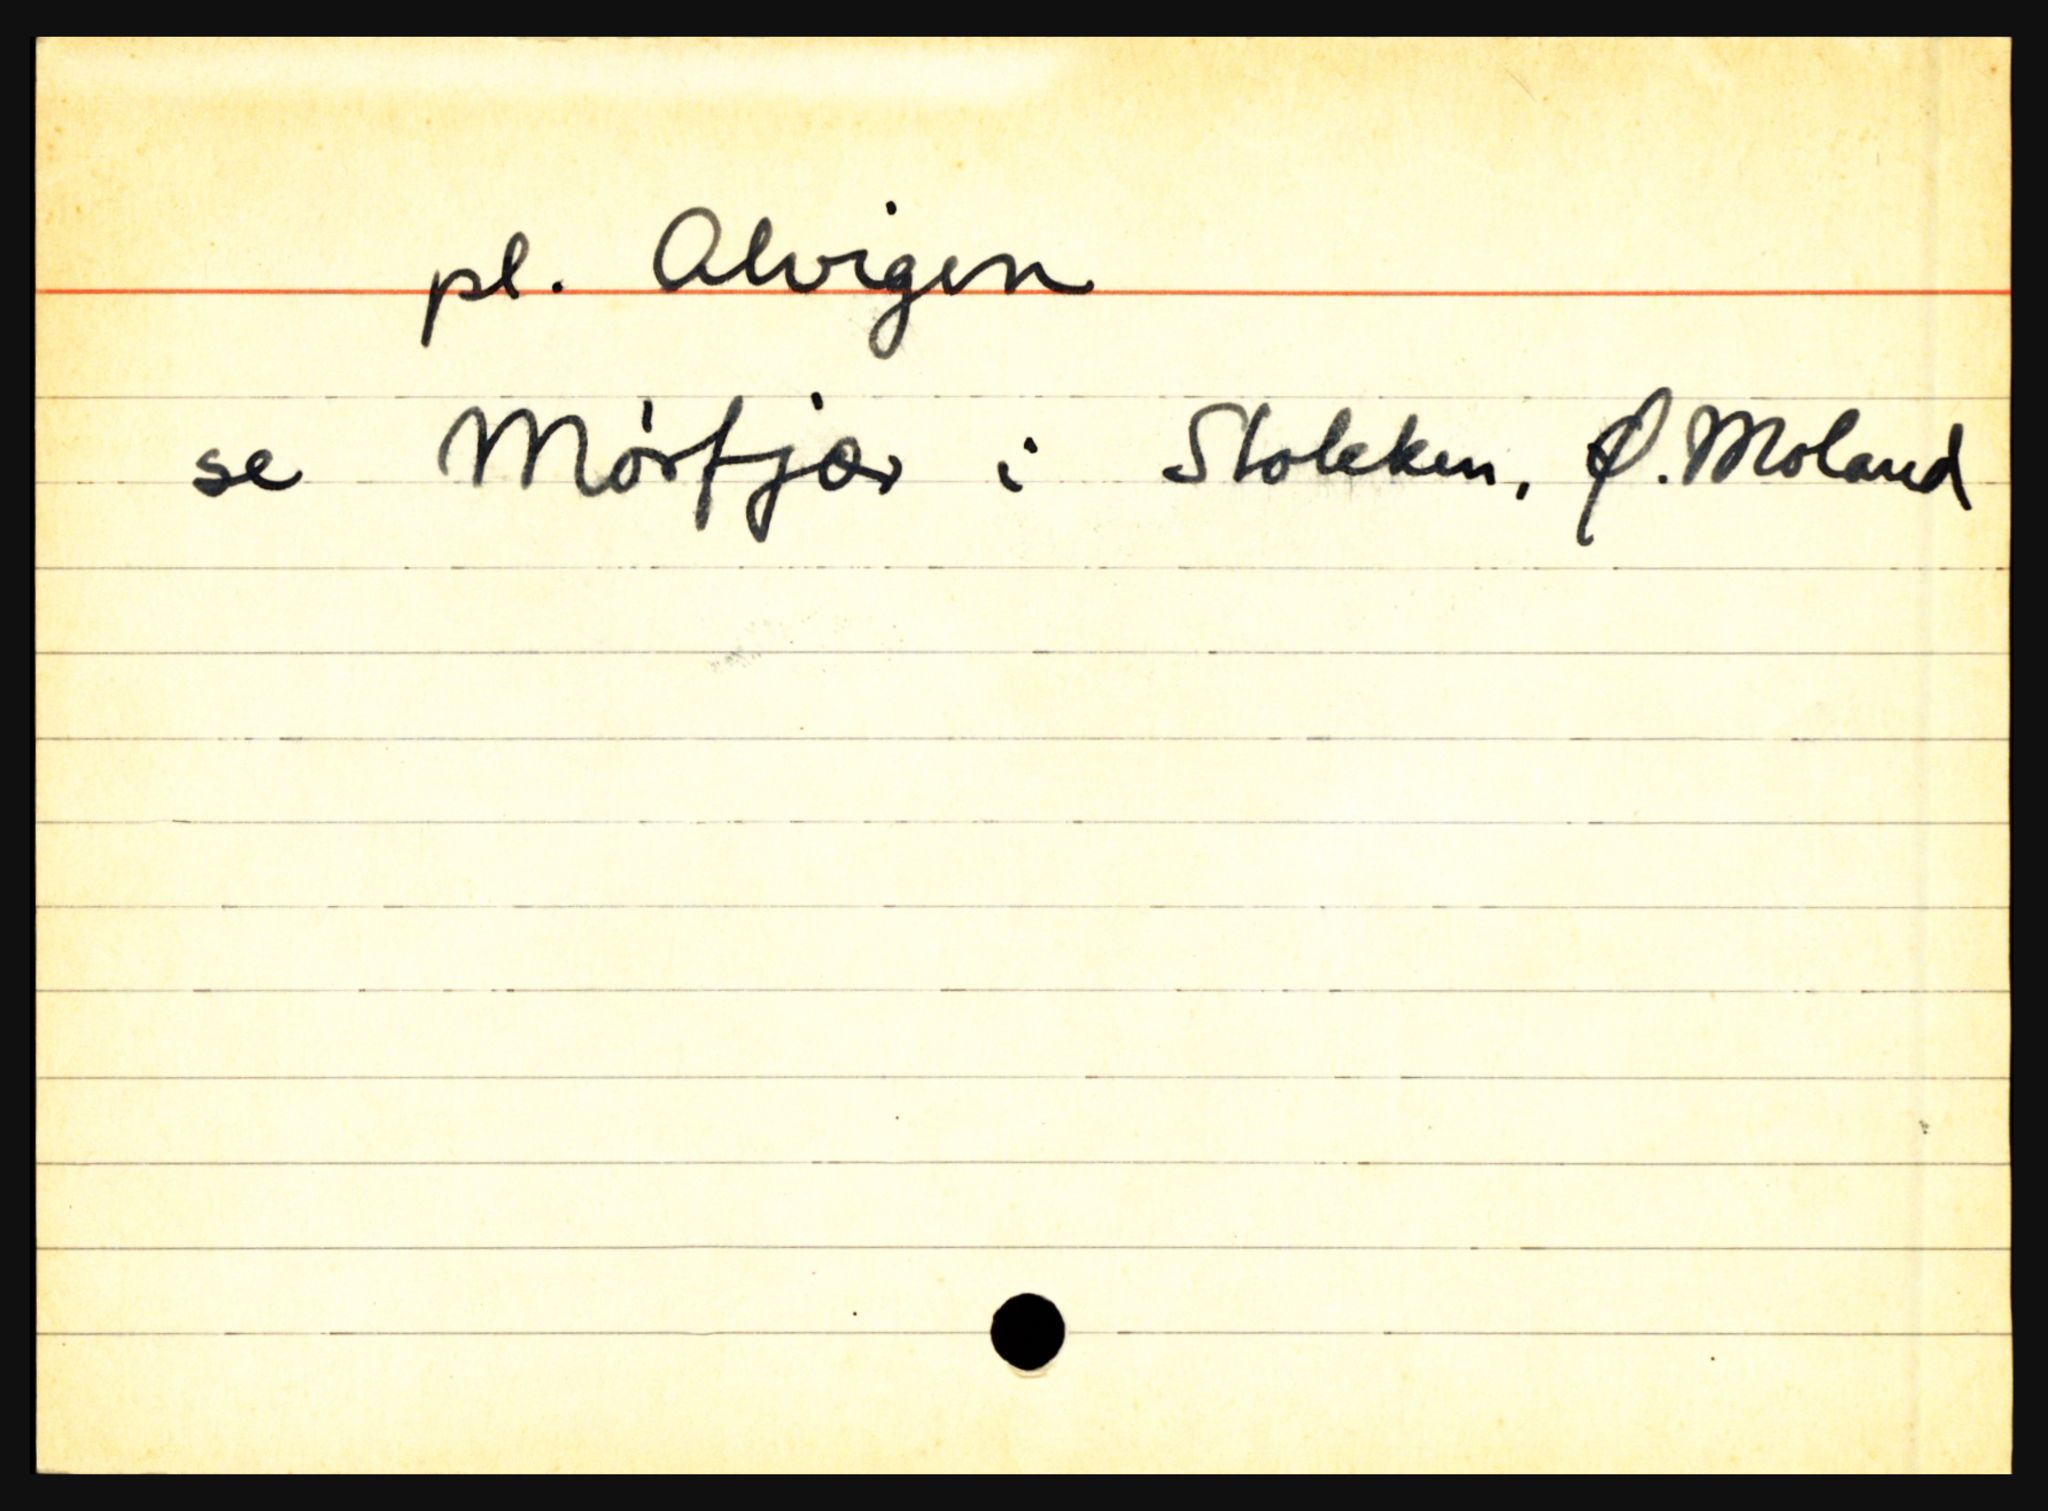 pl. Alvigen
se Mørfjær i Stokken, Ø. Moland